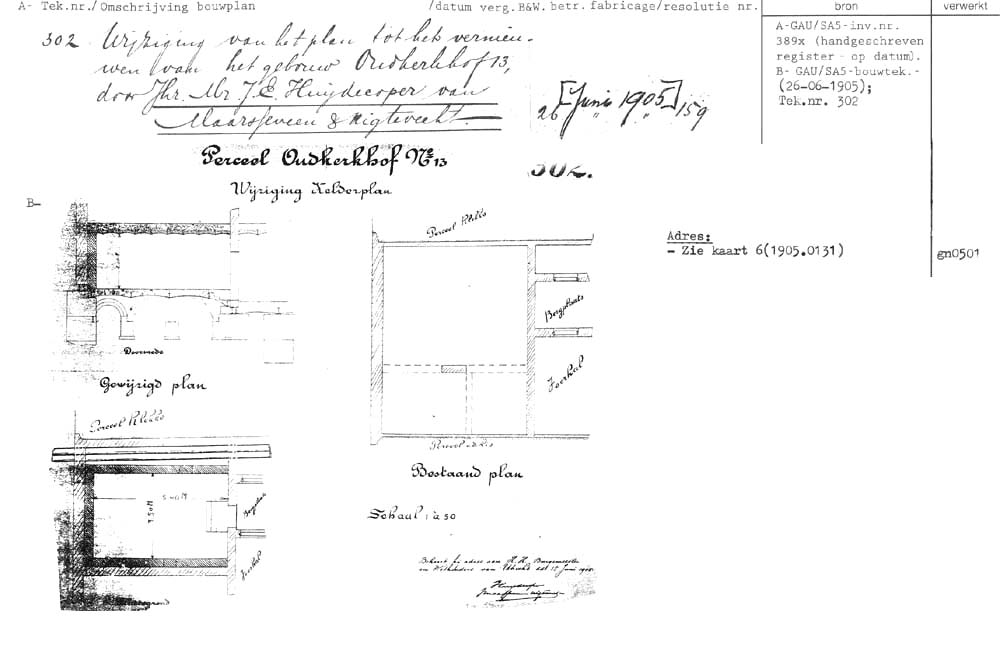 A- Tek.nr./Omschrijving bouwplan
/datum verg.B&W. betr. fabricage/resolutie nr.
bron
verwerkt
302 Wijziging van het plan tot het vernieu-
wen van het gebouw Oudkerkhof 13,
door Jhr. Mr. J.E. Huydecoper van
Maarsseveen & Nigtevecht.
26 [Juni 1905] 159
A-GAU/SA5-inv.nr.
389x (handgeschreven
register - op datum).
B- GAU/SA5-bouwtek.-
(26-06-1905);
Tek.nr. 302
Perceel Oudkerkhof No 13
302.
Wijziging Kelderplan
B-
Perceel
Adres:
- Zie kaart 6(1905.0131)
gn0501
Bergplaats
Doorsnede
Voorhal
Gewijzigd plan
Perceel
Perceel
Bestaand plan
5.40 M
3.50 M
Schaal 1 à 50
Behoort bij adres aan H.H. Burgemeester
en Wethouders van Utrecht dd. Juni